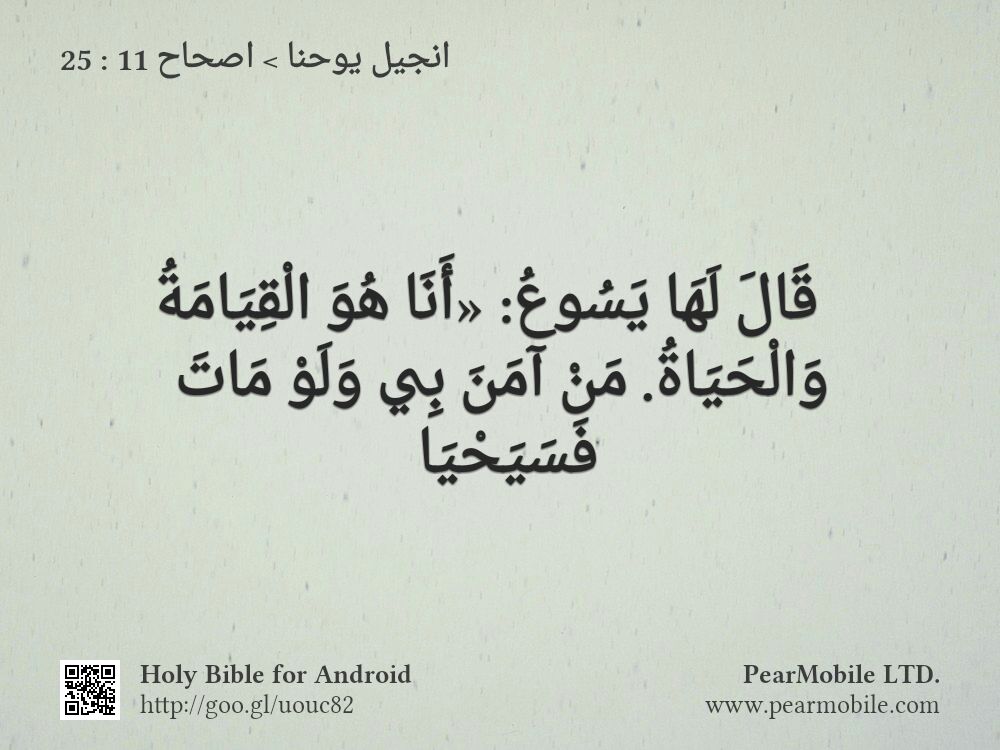 انجيل يوحنا > اصحاح 11 : 25
قَالَ لَهَا يَسُوعُ: «أَنَا هُوَ الْقِيَامَةُ
وَالْحَيَاةُ. مَنْ آمَنَ بِي وَلَوْ مَاتَ
فَسَيَحْيَا
Holy Bible for Android
http://goo.gl/uouc82
PearMobile LTD.
www.pearmobile.com